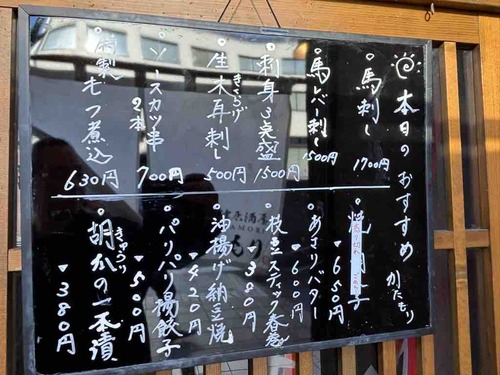 本日のおすすめ かたもり
馬刺し 1700円
馬レバー刺し 1500円
刺身3点盛 1500円
生木耳刺し 500円
きくらげ
ソースカツ串 2本 700円
特製もつ煮込 630円
650円
売り切れ
あさりバター 600円
枝豆スティック春巻 380円
油揚げ納豆焼 420円
パリパリ揚餃子 500円
胡瓜の一本漬 380円
きゅうり